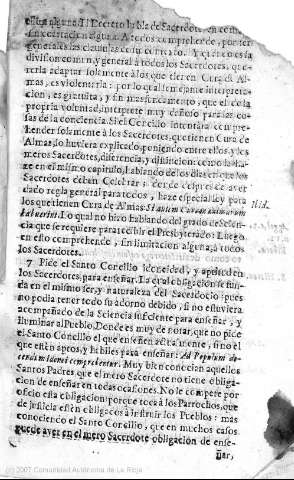 El Decreto habla de Sacerdote en comun,
sin excitacion alguna: A todos comprehende, por ser
generales las clausulas con
division comun, y general à todos los Sacerdotes, que-
rerla adaptar solamente à los que tienen Cura de Al-
mas, es violentarla; por lo qual semejante interpreta-
cion, es gratuita, y sin mas fundamento, que el de la
propria voluntad, interprete muy dañoso para las co-
sas de la conciencia. Si el Concilio intentàra compre-
hender solamente à los Sacerdotes, que tienen Cura de
Almas, lo huviera explicado, poniendo entre ellos, y los
meros Sacerdotes, diferencia, y distincion: como la ha-
ze en el mismo capitulo, hablando de los dias en que los
Sacerdotes deben Celebrar; donde despues de aver
dado regla general para todos, haze especial ley para
los que tienen Cura de Almas. Si autem Curam animarum
habuerint. Lo qual no hizo hablando del grado de Scien-
cia que se requiere para recibir el Presbyterado: Luego
en esto comprehende, sin limitacion alguna, à todos
los Sacerdotes.
Ibid.
7 Pide el Santo Concilio idoneidad, y aptitud en
los Sacerdotes, para enseñar. La qual obligacion se fun-
da en el mismo ser, y naturaleza del Sacerdocio: pues
no podia tener todo su adorno debido, si no estuviera
acompañado de la Sciencia suficiente para enseñar, y
iluminar al Pueblo. Donde es muy de notar, que no pide
el Santo Concilio el que enseñen actualmente, sino el
que estèn aptos, y habiles para enseñar: Ad Populum do-
cendum idonei comprobentur. Muy bien conocian aquellos
Santos Padres, que el mero Sacerdote no tiene obliga-
cion de enseñar en todas ocasiones. No le compete por
oficio esta obligacion, porque toca à los Parrochos, que
de justicia estàn obligados à instruir los Pueblos: mas
conociendo el Santo Concilio, que en muchos casos
puede aver en el mero Sacerdote obligacion de ense-
ñar,
(c) 2007 Comunidad Autónoma de La Rioja